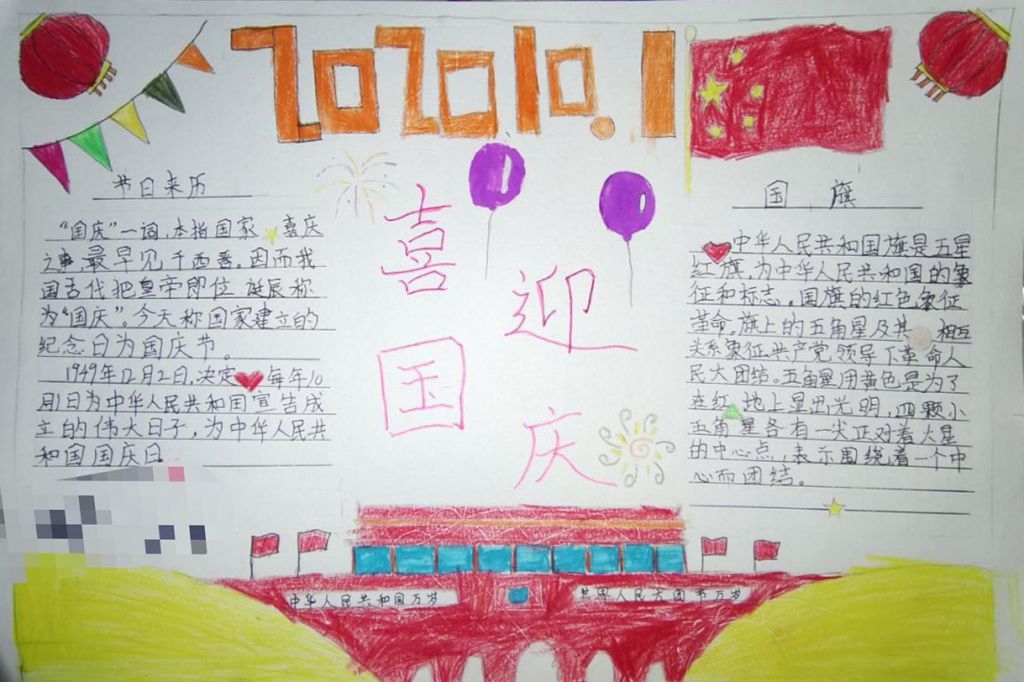 2020 10.1
节日来历
"国庆"一词,本指国家 喜庆
之事,最早见于西晋。因而我
国古代把皇帝即位、诞辰称
为"国庆"。今天称国家建立的
纪念日为国庆节。
1949年12月2日,决定 每年10
月1日为中华人民共和国宣告成
立的伟大日子,为中华人民共
和国国庆日
喜迎
国庆
国旗
中华人民共和国旗是五星
红旗,为中华人民共和国的象
征和标志。国旗的红色象征
革命。旗上的五角星及其 相互
关系象征共产党领导下革命人
民大团结。五角星用黄色是为了
在红 地上显出光明,四颗小
五角星各有一尖正对着大星
的中心点,表示围绕着一个中
心而团结。
中华人民共和国万岁
世界人民大团 万岁